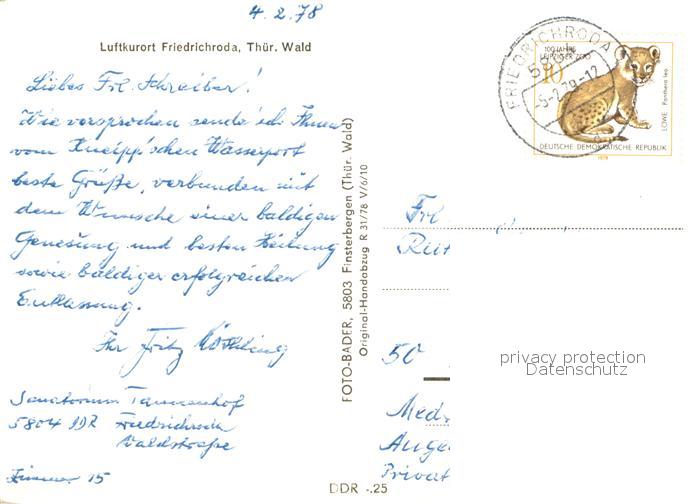 4.2.78
Luftkurort Friedrichroda, Thür. Wald
Liebes Frl. Schreiber!
Wie versprochen sende ich Ihnen
vom Kneipp'schen Wassersport
beste Grüße, verbunden mit
dem Wunsche einer baldigen
Genesung und besten Heilung
sowie baldiger erfolgreichen
Entlassung.
Ihr Fritz
Sanatorium Tannenhof
5804 DDR Friedrichroda
Waldstraße
Zimmer 15
FOTO-BADER, 5803 Finsterbergen (Thür. Wald)
Original-Handabzug R 31/78 V/6/10
DDR -.25
FRIEDRICHRODA
58
100 JAHRE
LEIPZIGER ZOO
10
LÖWE Panthera leo
DEUTSCHE DEMOKRATISCHE REPUBLIK
1978
Frl.
50
Med.
Privat
privacy protection
Datenschutz